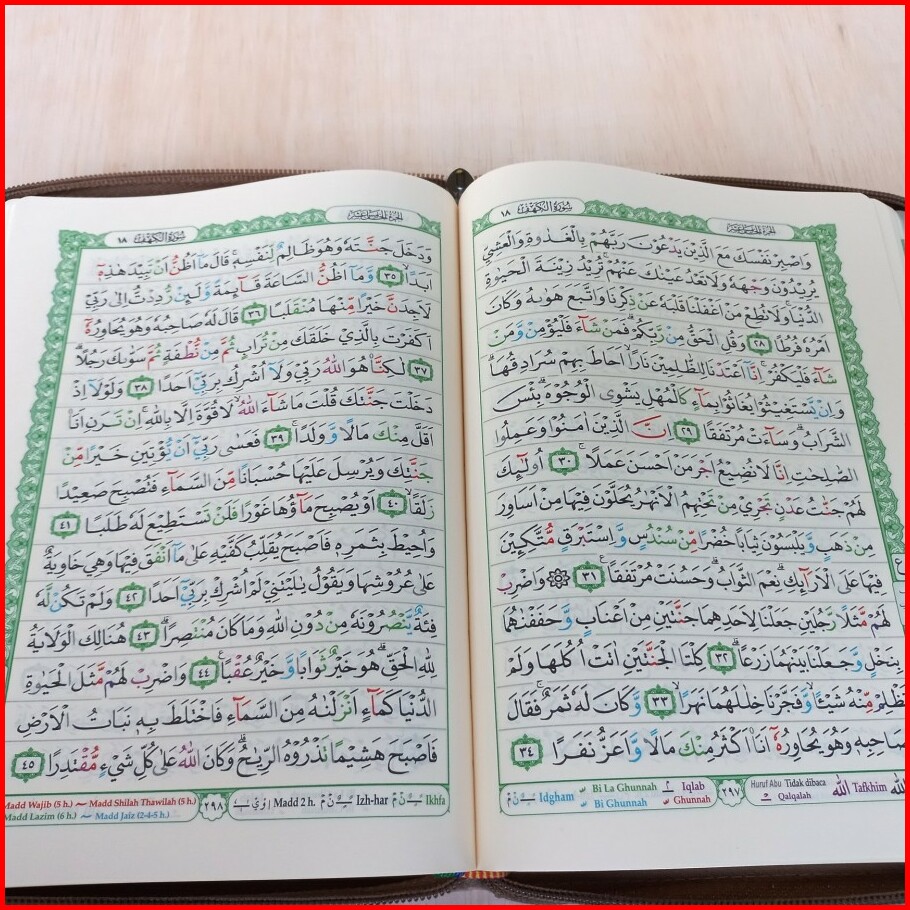 الجزء الخامس عشر
سورة الكهف ١٨
وَاصْبِرْ نَفْسَكَ مَعَ الَّذِيْنَ يَدْعُوْنَ رَبَّهُمْ بِالْغَدٰوةِ وَالْعَشِيِّ
يُرِيْدُوْنَ وَجْهَهٗ وَلَا تَعْدُ عَيْنٰكَ عَنْهُمْۚ تُرِيْدُ زِيْنَةَ الْحَيٰوةِ
الدُّنْيَاۚ وَلَا تُطِعْ مَنْ اَغْفَلْنَا قَلْبَهٗ عَنْ ذِكْرِنَا وَاتَّبَعَ هَوٰىهُ وَكَانَ
اَمْرُهٗ فُرُطًا ٢٨ وَقُلِ الْحَقُّ مِنْ رَّبِّكُمْۗ فَمَنْ شَاۤءَ فَلْيُؤْمِنْ وَّمَنْ
شَاۤءَ فَلْيَكْفُرْۚ اِنَّآ اَعْتَدْنَا لِلظّٰلِمِيْنَ نَارًاۙ اَحَاطَ بِهِمْ سُرَادِقُهَاۗ
وَاِنْ يَّسْتَغِيْثُوْا يُغَاثُوْا بِمَاۤءٍ كَالْمُهْلِ يَشْوِى الْوُجُوْهَۗ بِئْسَ
الشَّرَابُۗ وَسَاۤءَتْ مُرْتَفَقًا ٢٩ اِنَّ الَّذِيْنَ اٰمَنُوْا وَعَمِلُوا
الصّٰلِحٰتِ اِنَّا لَا نُضِيْعُ اَجْرَ مَنْ اَحْسَنَ عَمَلًاۚ ٣٠ اُولٰۤىِٕكَ
لَهُمْ جَنّٰتُ عَدْنٍ تَجْرِيْ مِنْ تَحْتِهِمُ الْاَنْهٰرُ يُحَلَّوْنَ فِيْهَا مِنْ اَسَاوِرَ
مِنْ ذَهَبٍ وَّيَلْبَسُوْنَ ثِيَابًا خُضْرًا مِّنْ سُنْدُسٍ وَّاِسْتَبْرَقٍ مُّتَّكِـِٕيْنَ
فِيْهَا عَلَى الْاَرَاۤىِٕكِۗ نِعْمَ الثَّوَابُۗ وَحَسُنَتْ مُرْتَفَقًا ٣١ ۞ وَاضْرِبْ
لَهُمْ مَّثَلًا رَّجُلَيْنِ جَعَلْنَا لِاَحَدِهِمَا جَنَّتَيْنِ مِنْ اَعْنَابٍ وَّحَفَفْنٰهُمَا
بِنَخْلٍ وَّجَعَلْنَا بَيْنَهُمَا زَرْعًاۗ ٣٢ كِلْتَا الْجَنَّتَيْنِ اٰتَتْ اُكُلَهَا وَلَمْ
تَظْلِمْ مِّنْهُ شَيْـًٔاۙ وَّفَجَّرْنَا خِلٰلَهُمَا نَهَرًاۙ ٣٣ وَّكَانَ لَهٗ ثَمَرٌۚ فَقَالَ
صَاحِبِهٖ وَهُوَ يُحَاوِرُهٗٓ اَنَا۠ اَكْثَرُ مِنْكَ مَالًا وَّاَعَزُّ نَفَرًا ٣٤
Idgham Bi La Ghunnah Bi Ghunnah Iqlab Ghunnah ٢٩٧ Huruf Abu Tidak dibaca Qalqalah الله Tafkhim الله
الجزء الخامس عشر
سورة الكهف ١٨
وَدَخَلَ جَنَّتَهٗ وَهُوَ ظَالِمٌ لِّنَفْسِهٖۚ قَالَ مَآ اَظُنُّ اَنْ تَبِيْدَ هٰذِهٖٓ
اَبَدًاۙ ٣٥ وَّمَآ اَظُنُّ السَّاعَةَ قَاۤىِٕمَةً وَّلَىِٕنْ رُّدِدْتُّ اِلٰى رَبِّيْ
لَاَجِدَنَّ خَيْرًا مِّنْهَا مُنْقَلَبًا ٣٦ قَالَ لَهٗ صَاحِبُهٗ وَهُوَ يُحَاوِرُهٗٓ
اَكَفَرْتَ بِالَّذِيْ خَلَقَكَ مِنْ تُرَابٍ ثُمَّ مِنْ نُّطْفَةٍ ثُمَّ سَوّٰىكَ رَجُلًاۗ
٣٧ لٰكِنَّا۠ هُوَ اللّٰهُ رَبِّيْ وَلَآ اُشْرِكُ بِرَبِّيْٓ اَحَدًا ٣٨ وَلَوْلَآ اِذْ
دَخَلْتَ جَنَّتَكَ قُلْتَ مَا شَاۤءَ اللّٰهُ ۙ لَا قُوَّةَ اِلَّا بِاللّٰهِۚ اِنْ تَرَنِ اَنَا۠
اَقَلَّ مِنْكَ مَالًا وَّوَلَدًاۚ ٣٩ فَعَسٰى رَبِّيْٓ اَنْ يُّؤْتِيَنِ خَيْرًا مِّنْ
جَنَّتِكَ وَيُرْسِلَ عَلَيْهَا حُسْبَانًا مِّنَ السَّمَاۤءِ فَتُصْبِحَ صَعِيْدًا
زَلَقًاۙ ٤٠ اَوْ يُصْبِحَ مَاۤؤُهَا غَوْرًا فَلَنْ تَسْتَطِيْعَ لَهٗ طَلَبًا ٤١
وَاُحِيْطَ بِثَمَرِهٖ فَاَصْبَحَ يُقَلِّبُ كَفَّيْهِ عَلٰى مَآ اَنْفَقَ فِيْهَا وَهِيَ خَاوِيَةٌ
عَلٰى عُرُوْشِهَا وَيَقُوْلُ يٰلَيْتَنِيْ لَمْ اُشْرِكْ بِرَبِّيْٓ اَحَدًا ٤٢ وَلَمْ تَكُنْ لَّهٗ
فِئَةٌ يَّنْصُرُوْنَهٗ مِنْ دُوْنِ اللّٰهِ وَمَا كَانَ مُنْتَصِرًاۗ ٤٣ هُنَالِكَ الْوَلَايَةُ
لِلّٰهِ الْحَقِّۗ هُوَ خَيْرٌ ثَوَابًا وَّخَيْرٌ عُقْبًاۚ ٤٤ وَاضْرِبْ لَهُمْ مَّثَلَ الْحَيٰوةِ
الدُّنْيَا كَمَاۤءٍ اَنْزَلْنٰهُ مِنَ السَّمَاۤءِ فَاخْتَلَطَ بِهٖ نَبَاتُ الْاَرْضِ
فَاَصْبَحَ هَشِيْمًا تَذْرُوْهُ الرِّيٰحُۗ وَكَانَ اللّٰهُ عَلٰى كُلِّ شَيْءٍ مُّقْتَدِرًا ٤٥
Madd Wajib (5 h.) Madd Shilah Thawilah (5 h.) Madd Lazim (6 h.) Madd Jaiz (2-4-5 h.) ٢٩٨ Madd 2 h. Izh-har Ikhfa